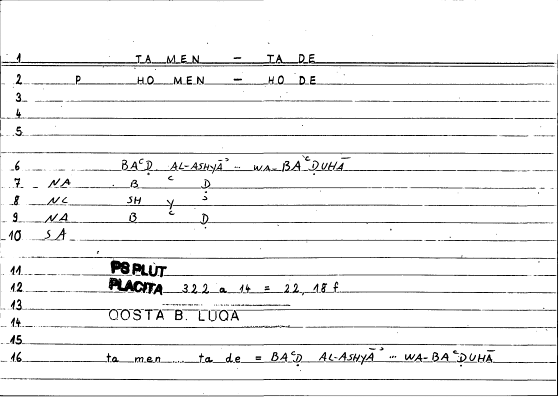 1 TA MEN – TA DE
2 P HO MEN – HO DE
3
4
5
6 BAᶜḌ AL-ASHYĀʾ ... WA-BAᶜḌUHĀ
7 NA B ᶜ Ḍ
8 NC SH Y ʾ
9 NA B ᶜ Ḍ
10 SA
11 PS PLUT
12 PLACITA 322 a 14 = 22, 18 f
13
14 QOSTA B. LUQA
15
16 ta men ta de = BAᶜḌ AL-ASHYĀʾ ... WA-BAᶜḌUHĀ